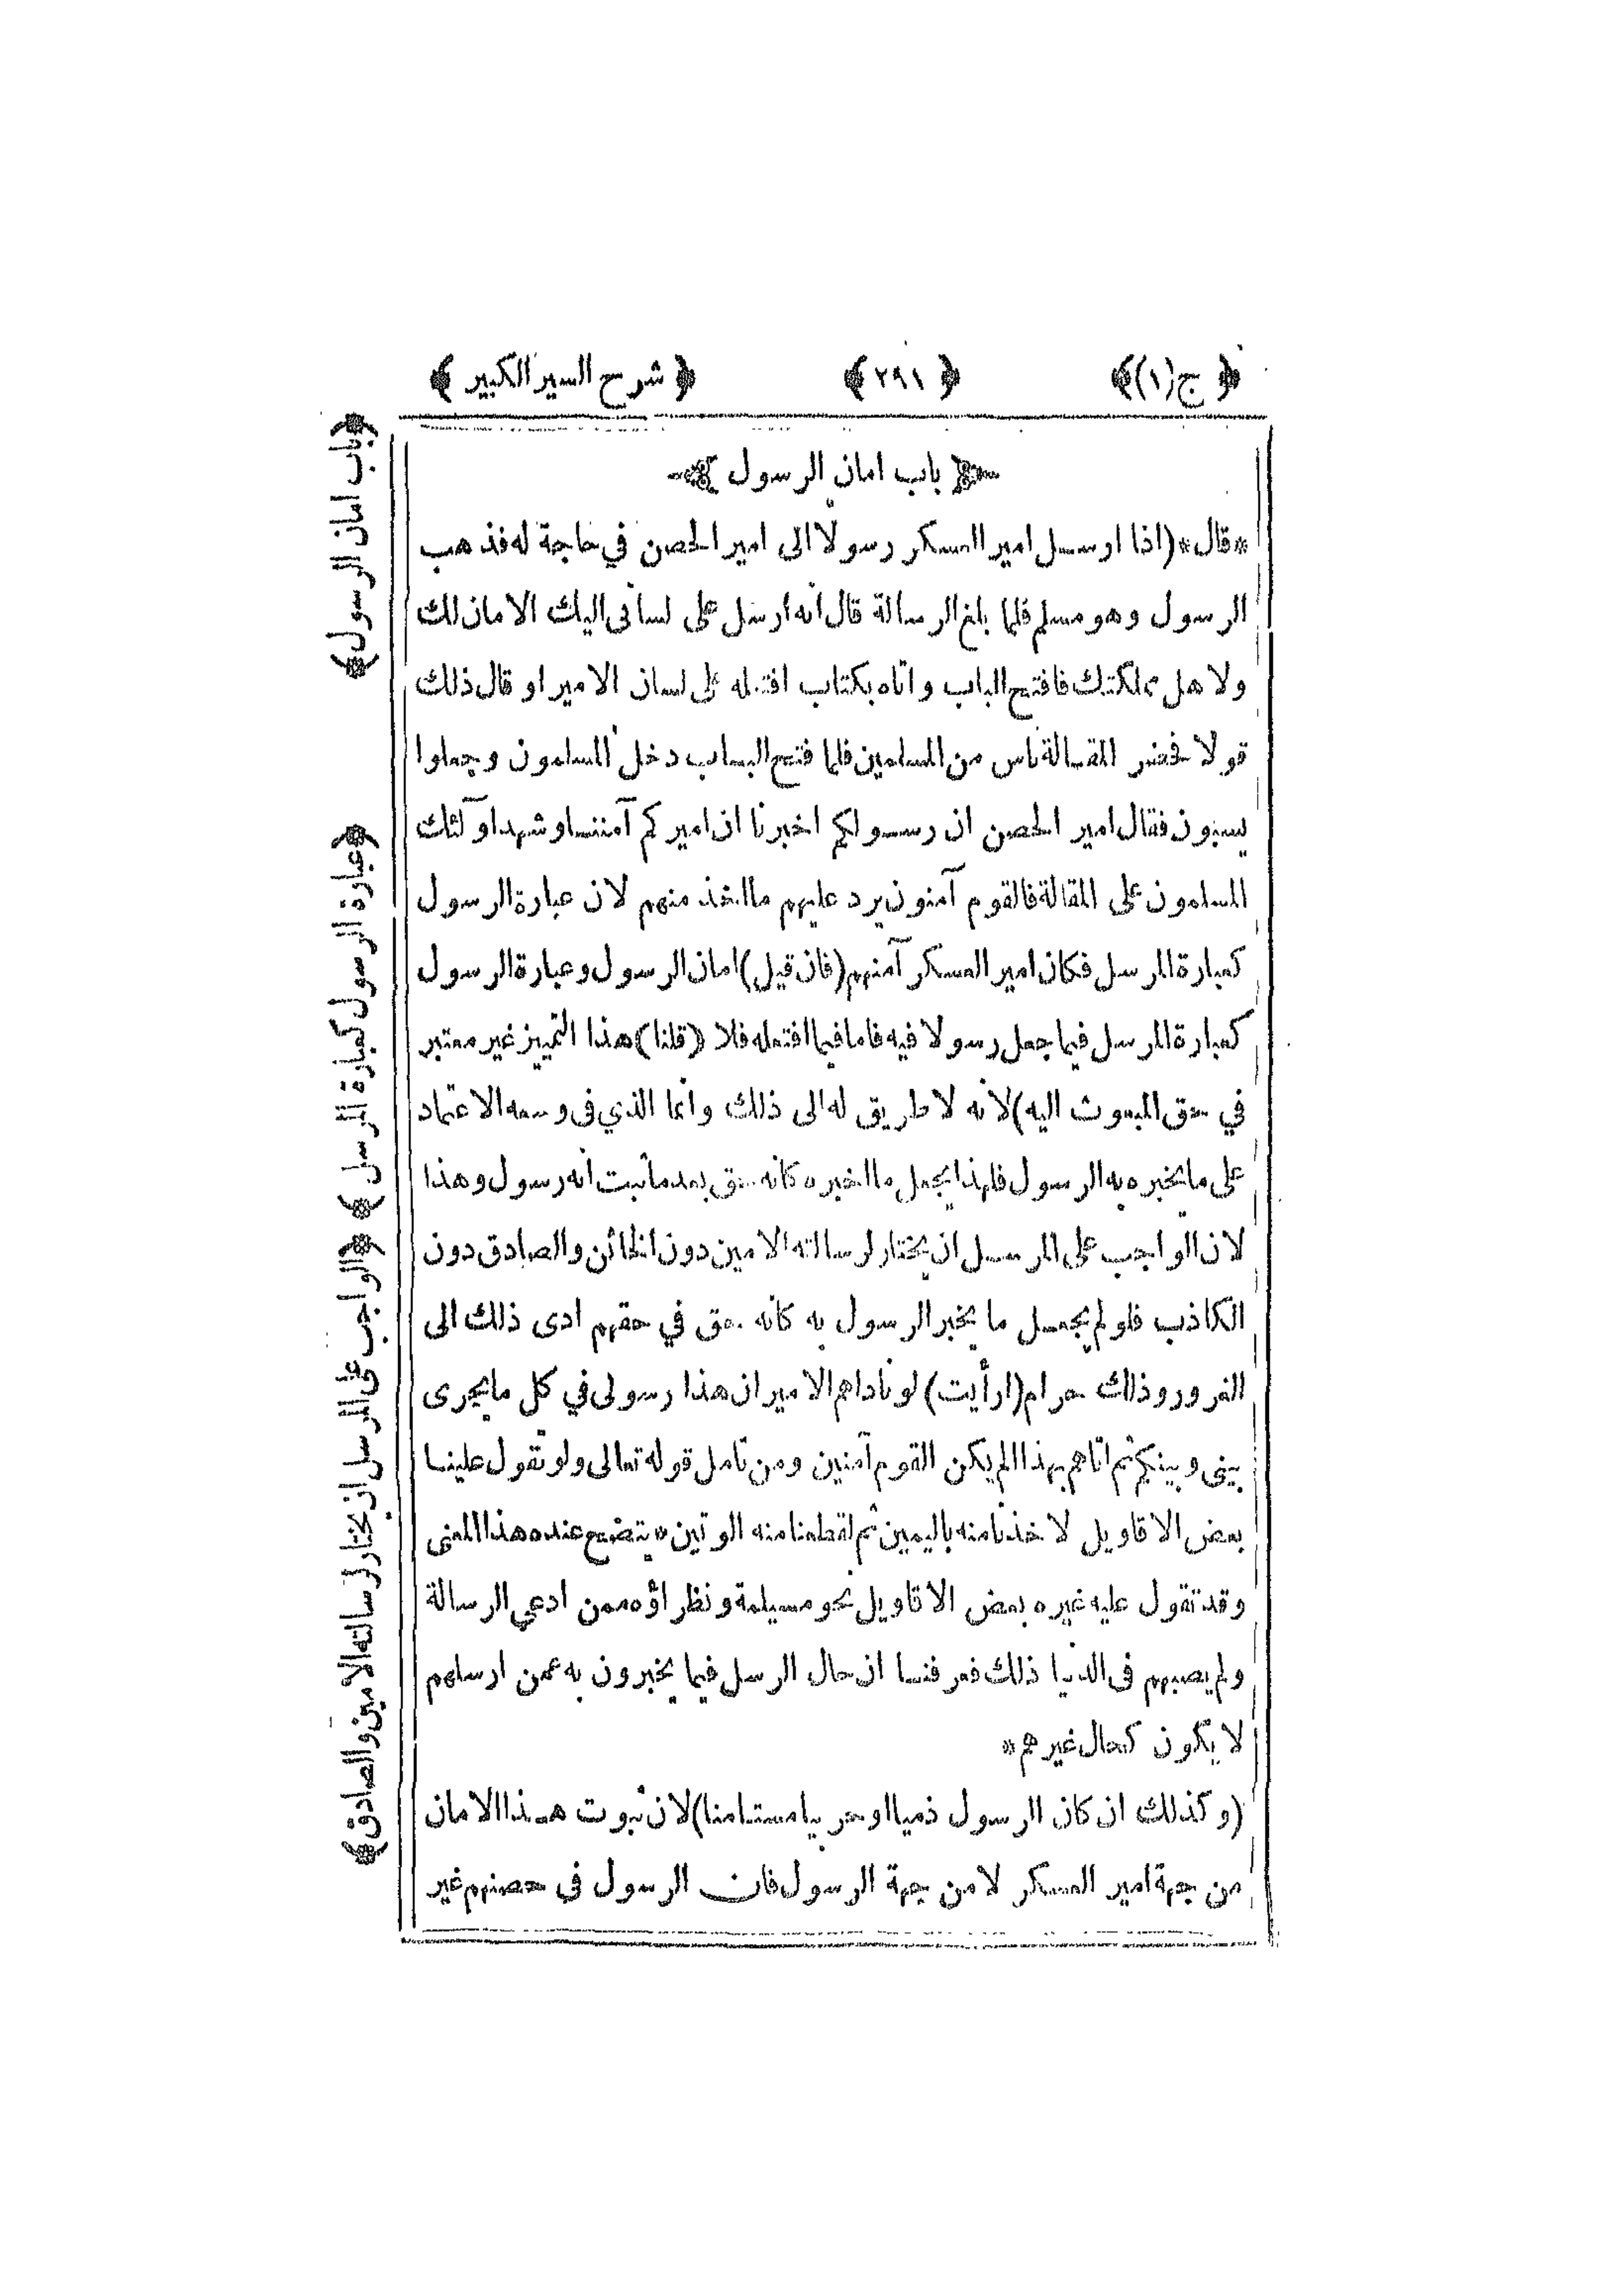 ﴿ ج (١) ﴾ ﴿ ٢٩١ ﴾ ﴿ شرح السير الكبير ﴾
باب امان الرسول
*قال* (اذا ارسل امير العسكر رسولا الى امير الحصن في حاجة له فذهب
الرسول وهو مسلم فلما بلغ الرسالة قال انه ارسل على لسانى اليك الامان لك
ولاهل مملكتك فافتح الباب واتاه بكتاب افتعله على لسان الامير او قال ذلك
قولا فحضر المقالة ناس من المسلمين فلما فتح الباب دخل المسلمون وجعلوا
يسبون فقال امير الحصن ان رسولكم اخبرنا ان اميركم آمننا وشهد اولٓئك
المسلمون على المقالة فالقوم آمنون يرد عليهم ما اخذ منهم لان عبارة الرسول
كعبارة المرسل فكان امير العسكر آمنهم (فان قيل) امان الرسول وعبارة الرسول
كعبارة المرسل فيما جعل رسولا فيه فاما فيما افتعله فلا (قلنا) هذا التمييز غير معتبر
في حق المبعوث اليه) لانه لا طريق له الى ذلك وانما الذي فى وسعه الاعتماد
على ما يخبره به الرسول فلهذا يجعل ما اخبره كانه حق بعد ما ثبت انه رسول وهذا
لان الواجب على المرسل ان يختار لرسالته الامين دون الخائن والصادق دون
الكاذب فلو لم يجعل ما يخبر الرسول به كانه حق في حقهم ادى ذلك الى
الغرور وذلك حرام (ارأيت) لو ناداهم الامير ان هذا رسولى في كل ما يجرى
بينى وبينكم ثم اتاهم بهذا الم يكن القوم آمنين ومن تأمل قوله تعالى ولو تقول علينا
بعض الاقاويل لاخذنا منه باليمين ثم لقطعنا منه الوتين * يتضح عنده هذا المعنى
وقد تقول عليه غيره بعض الاقاويل نحو مسيلمة ونظراؤه ممن ادعي الرسالة
ولم يصبهم فى الدنيا ذلك فعرفنا ان حال الرسل فيما يخبرون به عمن ارسلهم
لا يكون كحال غيرهم*
(وكذلك ان كان الرسول ذميا او حربيا مستامنا) لان ثبوت هذا الامان
من جهة امير العسكر لا من جهة الرسول فان الرسول فى حصنهم غير
﴿باب امان الرسول﴾
﴿عبارة الرسول كعبارة المرسل﴾
﴿الواجب على المرسل ان يختار لرسالته الامين والصادق﴾